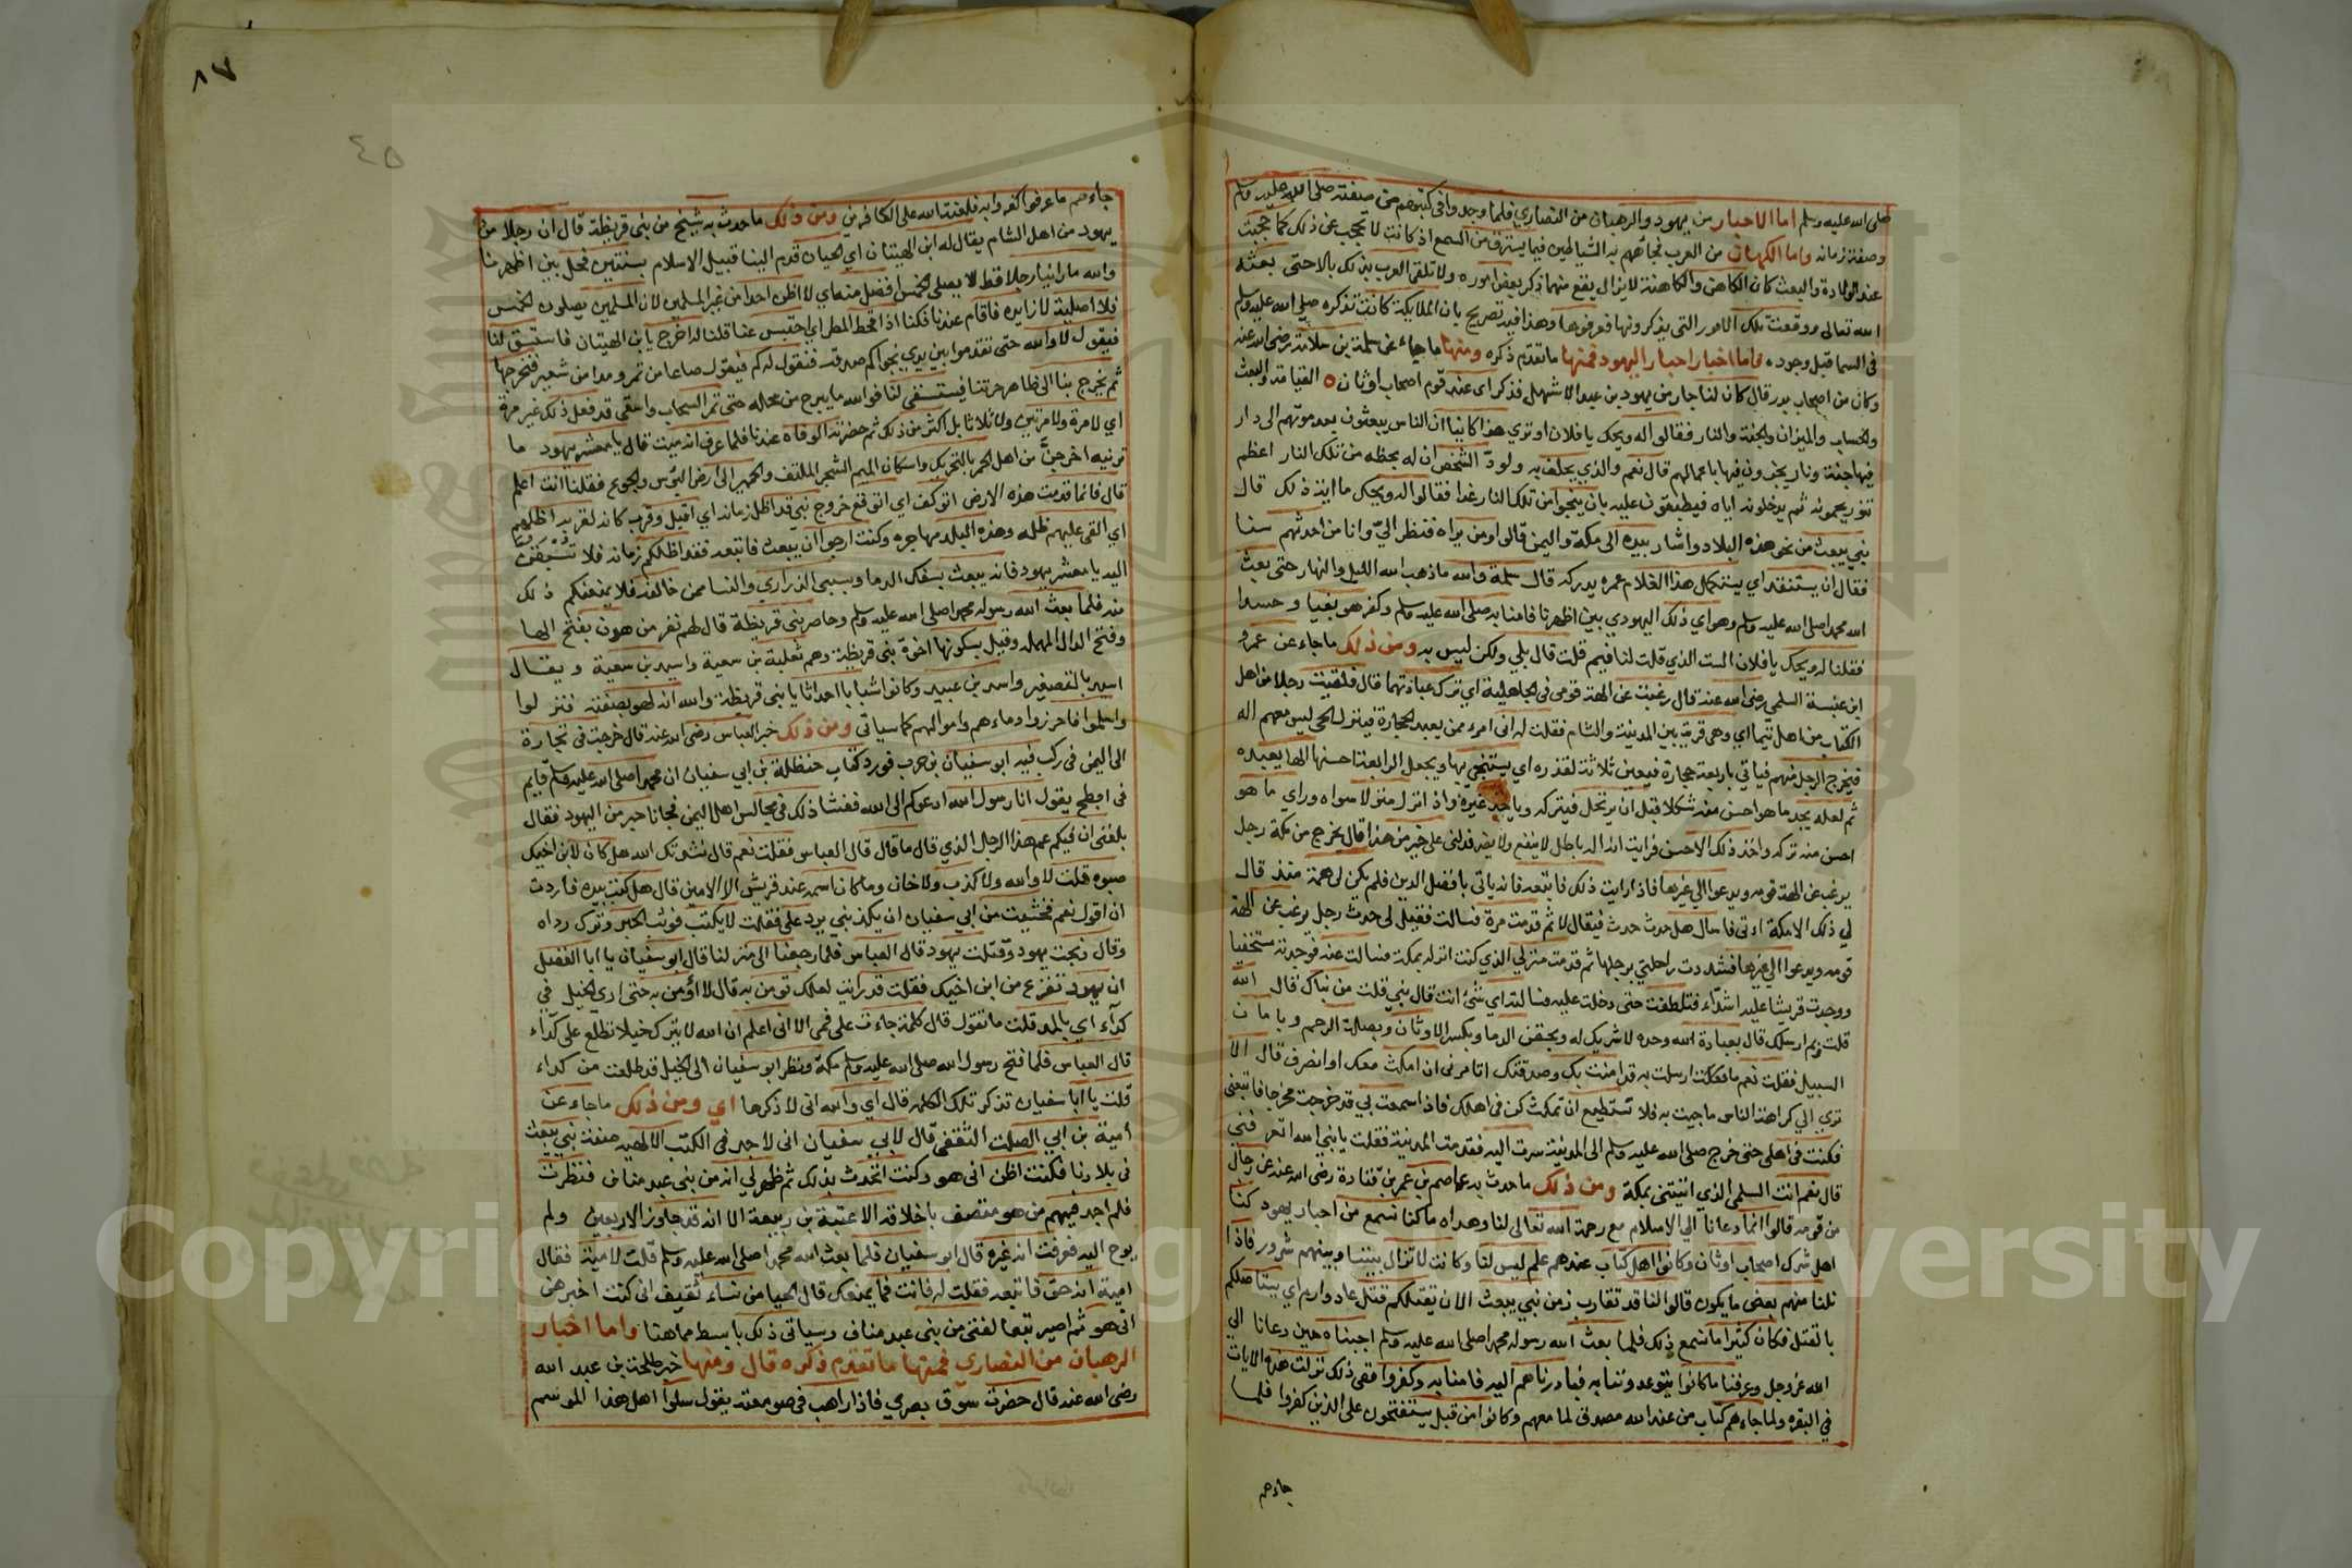 صلى الله عليه وسلم اما الاحبار من يهود والرهبان من النصاري فلما وجدوا في كتبهم من صفته صلى الله عليه وسلم
وصفة زمانه واما الكهان من العرب فجاءهم به الشياطين فيما يسترق من السمع اذ كانت لا تحجب عن ذلك كما حجبت
عند الولادة والبعث كان الكاهن والكاهنة لا يزال يقع منهما ذكر بعض اموره ولا تلقي العرب بذلك بالا حتى بعثه
الله تعالى ووقعت تلك الامور التي يذكرونها فعرفوها وهذا فيه تصريح بان الملايكة كانت تذكره صلى الله عليه وسلم
في السما قبل وجوده فاما اخبار احبار اليهود فمنها ما تقدم ذكره ومنها ما جاء عن سلمة بن سلامة رضي الله عنه
وكان من اصحاب بدر قال كان لنا جار من يهود بن عبد الاشهل فذكر اى عند قوم اصحاب اوثان القيامة والبعث
والحساب والميزان والجنة والنار فقالوا له ويحك يا فلان او تري هذا كاينا ان الناس يبعثون بعد موتهم الى دار
فيها جنة ونار يجزون فيها باعمالهم قال نعم والذي يحلف به ولودّ الشخص ان له بحظه من تلك النار اعظم
تنور يحمونه ثم يدخلونه اياه فيطبقون عليه بان ينجوا من تلك النار غدا فقالوا له ويحك ما اية ذلك قال
نبي يبعث من نحو هذه البلاد واشار بيده الى مكة واليمن قالوا ومن يراه فنظر الىّ وانا من احدثهم سنا
فقال ان يستنفد اي يستكمل هذا الغلام عمره يدركه قال سلمة والله ما ذهب الله الليل والنهار حتى بعث
الله محمدا صلى الله عليه وسلم وهو اي ذلك اليهودي بين اظهرنا فامنا به صلى الله عليه وسلم وكفر هو بغيا وحسدا
فقلنا له ويحك يا فلان الست الذي قلت لنا فيه قلت قال بلي ولكن ليس به ومن ذلك ما جاء عن عمرو
ابن عنبسة السلمي رضي الله عنه قال رغبت عن الهة قومي في الجاهلية اي ترك عبادتها قال فلقيت رجلا من اهل
الكتاب من اهل تيما اي وهي قرية بين المدينة والشام فقلت له اني امرء ممن يعبد الحجارة فينزل الحي ليس معهم اله
فيخرج الرجل منهم فياتي باربعة حجارة فيعين ثلاثة لقذره اي يستنجي بها ويجعل الرابع احسنها الها يعبده
ثم لعله يجد ما هو احسن منه شكلا قبل ان يرتحل فيتركه وياخذ غيره واذا نزل منزلا سواه وراي ما هو
احسن منه تركه واخذ ذلك الاحسن فرايت انه اله باطل لا ينفع ولا يضر فدلني على خير من هذا قال يخرج من مكة رجل
يرغب عن الهة قومه ويدعوا الي غيرها فاذا رايت ذلك فاتبعه فانه ياتي بافضل الدين فلم يكن لي همة منذ قال
لي ذلك الا مكة اتى فاسال هل حدث حدث فيقال لا ثم قدمت مرة فسالت فقيل لي حدث رجل يرغب عن الهة
قومه ويدعوا الي غيرها فشددت راحلتي برحلها ثم قدمت منزلي الذي كنت انزله بمكة فسالت عنه فوجدته مستخفيا
ووجدت قريشا عليه اشداء فتلطفت حتى دخلت عليه فسالته اي شئ انت قال نبي قلت من نباك قال الله
قلت وبم ارسلك قال بعبادة الله وحده لا شريك له وبحقن الدما وبكسر الاوثان وبصلة الرحم وبامان
السبيل فقلت نعم ما ارسلت به قد امنت بك وصدقتك اتامرني ان امكث معك او انصرف قال الا
تري الي كراهة الناس ما جيت به فلا تستطيع ان تمكث كن في اهلك فاذا سمعت بي قد خرجت مخرجا فاتبعني
فكنت في اهلي حتى خرج صلى الله عليه وسلم الى المدينة سرت اليه فقدمت المدينة فقلت يا نبي الله اتعرفني
قال نعم انت السلمي الذي اتيتني بمكة ومن ذلك ما حدث به عاصم بن عمر بن قتادة رضي الله عنه عن رجال
من قومه قالوا انما دعانا الي الاسلام مع رحمة الله تعالى لنا وهداه ما كنا نسمع من احبار يهود كنا
اهل شرك اصحاب اوثان وكانوا اهل كتاب عندهم علم ليس لنا وكانت لا تزال بيننا وبينهم شرور فاذا
نلنا منهم بعض ما يكون قالوا لنا قد تقارب زمن نبي يبعث الان نقتلكم قتل عاد وارم اي يستاصلكم
بالقتل فكان كثيرا ما نسمع ذلك فلما بعث الله رسوله محمدا صلى الله عليه وسلم اجبناه حين دعانا الى
الله عز وجل وعرفنا ما كانوا يتوعدوننا به فبادرناهم اليه فامنا به وكفروا ففي ذلك نزلت هذه الايات
في البقره ولما جاءهم كتاب من عند الله مصدق لما معهم وكانوا من قبل يستفتحون على الذين كفروا فلما
جاءهم
٨٧
٤٥
جاءهم ما عرفوا كفروا به فلعنة الله على الكافرين ومن ذلك ما حدث به شيخ من بني قريظة قال ان رجلا من
يهود من اهل الشام يقال له ابن الهيبان اي الحيان قدم الينا قبيل الاسلام بسنتين فحل بين اظهرنا
والله ما راينا رجلا قط لا يصلي الخمس افضل منه اي لا اظن احدا من غير المسلمين لان المسلمين يصلون الخمس
فلا اصلية لا زايده فاقام عندنا فكنا اذا قحط المطر اي احتبس عنا قلنا له اخرج يا ابن الهيبان فاستسق لنا
فيقول لا والله حتى تقدموا بين يدي نجواكم صدقة فنقول له كم فيقول صاعا من تمر ومدا من شعير فنخرجها
ثم يخرج بنا الى ظاهر حرتنا فيستسقي لنا فوالله ما يبرح من محله حتى تمر السحاب ونسقى قد فعل ذلك غير مرة
اي لا مرة ولا مرتين ولا ثلاثا بل اكثر من ذلك ثم حضرته الوفاة عندنا فلما عرف انه ميت قال يا معشر يهود ما
ترنيه اخرجني من اهل الخمر بالتحريك واسكان الميم الشجر الملتف والخمير الى ارض البوس والجوع فقلنا انت اعلم
قال فانما قدمت هذه الارض اتوكف اي اتوقع خروج نبي قد اظل زمانه اي اقبل وقرب كانه لقربه اظلهم
اي القى عليهم ظله وهذه البلد مهاجره وكنت ارجوا ان يبعث فاتبعه فقد اظلكم زمانه فلا تسبقن
اليه يا معشر يهود فانه يبعث بسفك الدما وبسبي الذراري والنسا ممن خالفه فلا يمنعنكم ذلك
منه فلما بعث الله رسوله محمدا صلى الله عليه وسلم وحاصر بني قريظة قال لهم نفر من هدل بفتح الها
وفتح الدال المهملة وقيل بسكونها اخوة بني قريظة وهم ثعلبة بن سعية واسيد بن سعية ويقال
اسيد بالتصغير واسد بن عبيد وكانوا شبابا احداثا يا بني قريظة والله انه لهو بصفته فنزلوا
واسلموا فاحرزوا دماءهم واموالهم كما سياتي ومن ذلك خبر العباس رضي الله عنه قال خرجت في تجارة
الى اليمن في ركب فيه ابو سفيان بن حرب فورد كتاب حنظلة بن ابي سفيان ان محمدا صلى الله عليه وسلم قايم
في ابطح يقول انا رسول الله ادعوكم الى الله ففشا ذلك في مجالس اهل اليمن فجانا حبر من اليهود فقال
بلغني ان فيكم عم هذا الرجل الذي قال ما قال قال العباس فقلت نعم قال نشدتك الله هل كان لابن اخيك
صبوه قلت لا والله ولا كذب ولا خان وما كان اسمه عند قريش الا الامين قال هل كتب بيده فاردت
ان اقول نعم فخشيت من ابي سفيان ان يكذبني يرد على فقلت لا يكتب فوثب الحبر وترك رداه
وقال ذبحت يهود وقتلت يهود قال العباس فلما رجعنا الى منزلنا قال ابو سفيان يا ابا الفضل
ان يهود تفزع من ابن اخيك فقلت قد رايت لعلك تومن به قال لا اؤمن به حتى اري الخيل في
كداء اي بالمد قلت ما تقول قال كلمة جاءت على فمي الا اني اعلم ان الله لا يترك خيلا تطلع على كداء
قال العباس فلما فتح رسول الله صلى الله عليه وسلم مكة ونظر ابو سفيان الى الخيل قد طلعت من كداء
قلت يا ابا سفيان تذكر تلك الكلمة قال اي والله اني لاذكرها اي ومن ذلك ما جاء عن
امية بن ابي الصلت الثقفي قال لابي سفيان اني لاجد في الكتب الالهيه صفة نبي يبعث
في بلادنا فكنت اظن اني هو وكنت اتحدث بذلك ثم ظهر لي انه من بني عبد مناف فنظرت
فلم اجد فيهم من هو متصف باخلاقه الا عتبة بن ربيعة الا انه قد جاوز الاربعين ولم
يوح اليه فعرفت انه غيره قال ابو سفيان فلما بعث الله محمدا صلى الله عليه وسلم قلت لامية فقال
امية انه حق فاتبعه فقلت له فانت فما يمنعك قال الحيا من نساء ثقيف اني كنت اخبرهن
اني هو ثم اصير تبعا لفتى من بني عبد مناف وسياتي ذلك بابسط مما هنا واما اخبار
الرهبان من النصاري فمنها ما تقدم ذكره قال ومنها خبر طلحة بن عبيد الله
رضي الله عنه قال حضرت سوق بصري فاذا راهب في صومعته يقول سلوا اهل هذا الموسم
Copyright © King Saud University